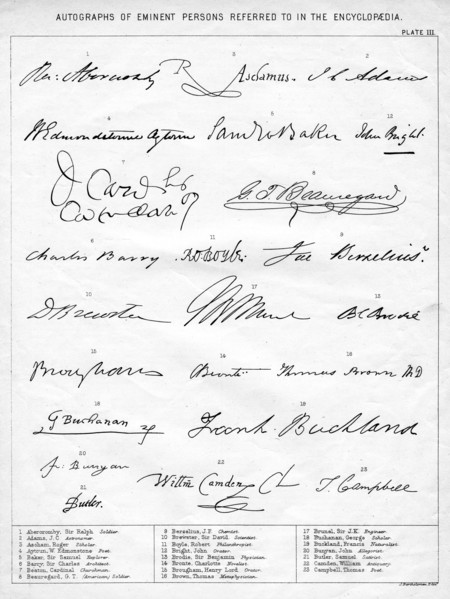 AUTOGRAPHS OF EMINENT PERSONS REFERRED TO IN THE ENCYCLOPÆDIA.
PLATE III.
1 3 2
Ra: Abercromby R Aschamus. J C Adams
4 5 12
W Edmondstoune Aytoun Saml W Baker John Bright.
7 8
G. T. Beauregard
6 11 9
Charles Barry Jac Berzelius.
10 17 13
D Brewster B C Brodie
15 14 16
Brougham Bronte Thomas Brown MD
18 19
G Buchanan Frank Buckland
20 22 23
Jo: Bunyan Willm Camden T. Campbell
21
Butler.
1 Abercromby, Sir Ralph Soldier
2 Adams, J.C. Astronomer
3 Ascham, Roger Scholar
4 Aytoun, W. Edmunstone Poet
5 Baker, Sir Samuel Explorer
6 Barry, Sir Charles Architect
7 Beaton, Cardinal Churchman
8 Beauregard, G. T. (American) Soldier
9 Berzelius, J.F. Chemist
10 Brewster, Sir David Scientist
11 Boyle, Robert Philanthropist
12 Bright, John Orator
13 Brodie, Sir Benjamin Physician
14 Bronte, Charlotte Novelist
15 Brougham, Henry Lord Orator
16 Brown, Thomas Metaphysician
17 Brunel, Sir J.K. Engineer
18 Buchanan, George Scholar
19 Buckland, Francis Naturalist
20 Bunyan, John Allegorist
21 Butler, Samuel Satirist
22 Camden, William Antiquary
23 Campbell, Thomas Poet